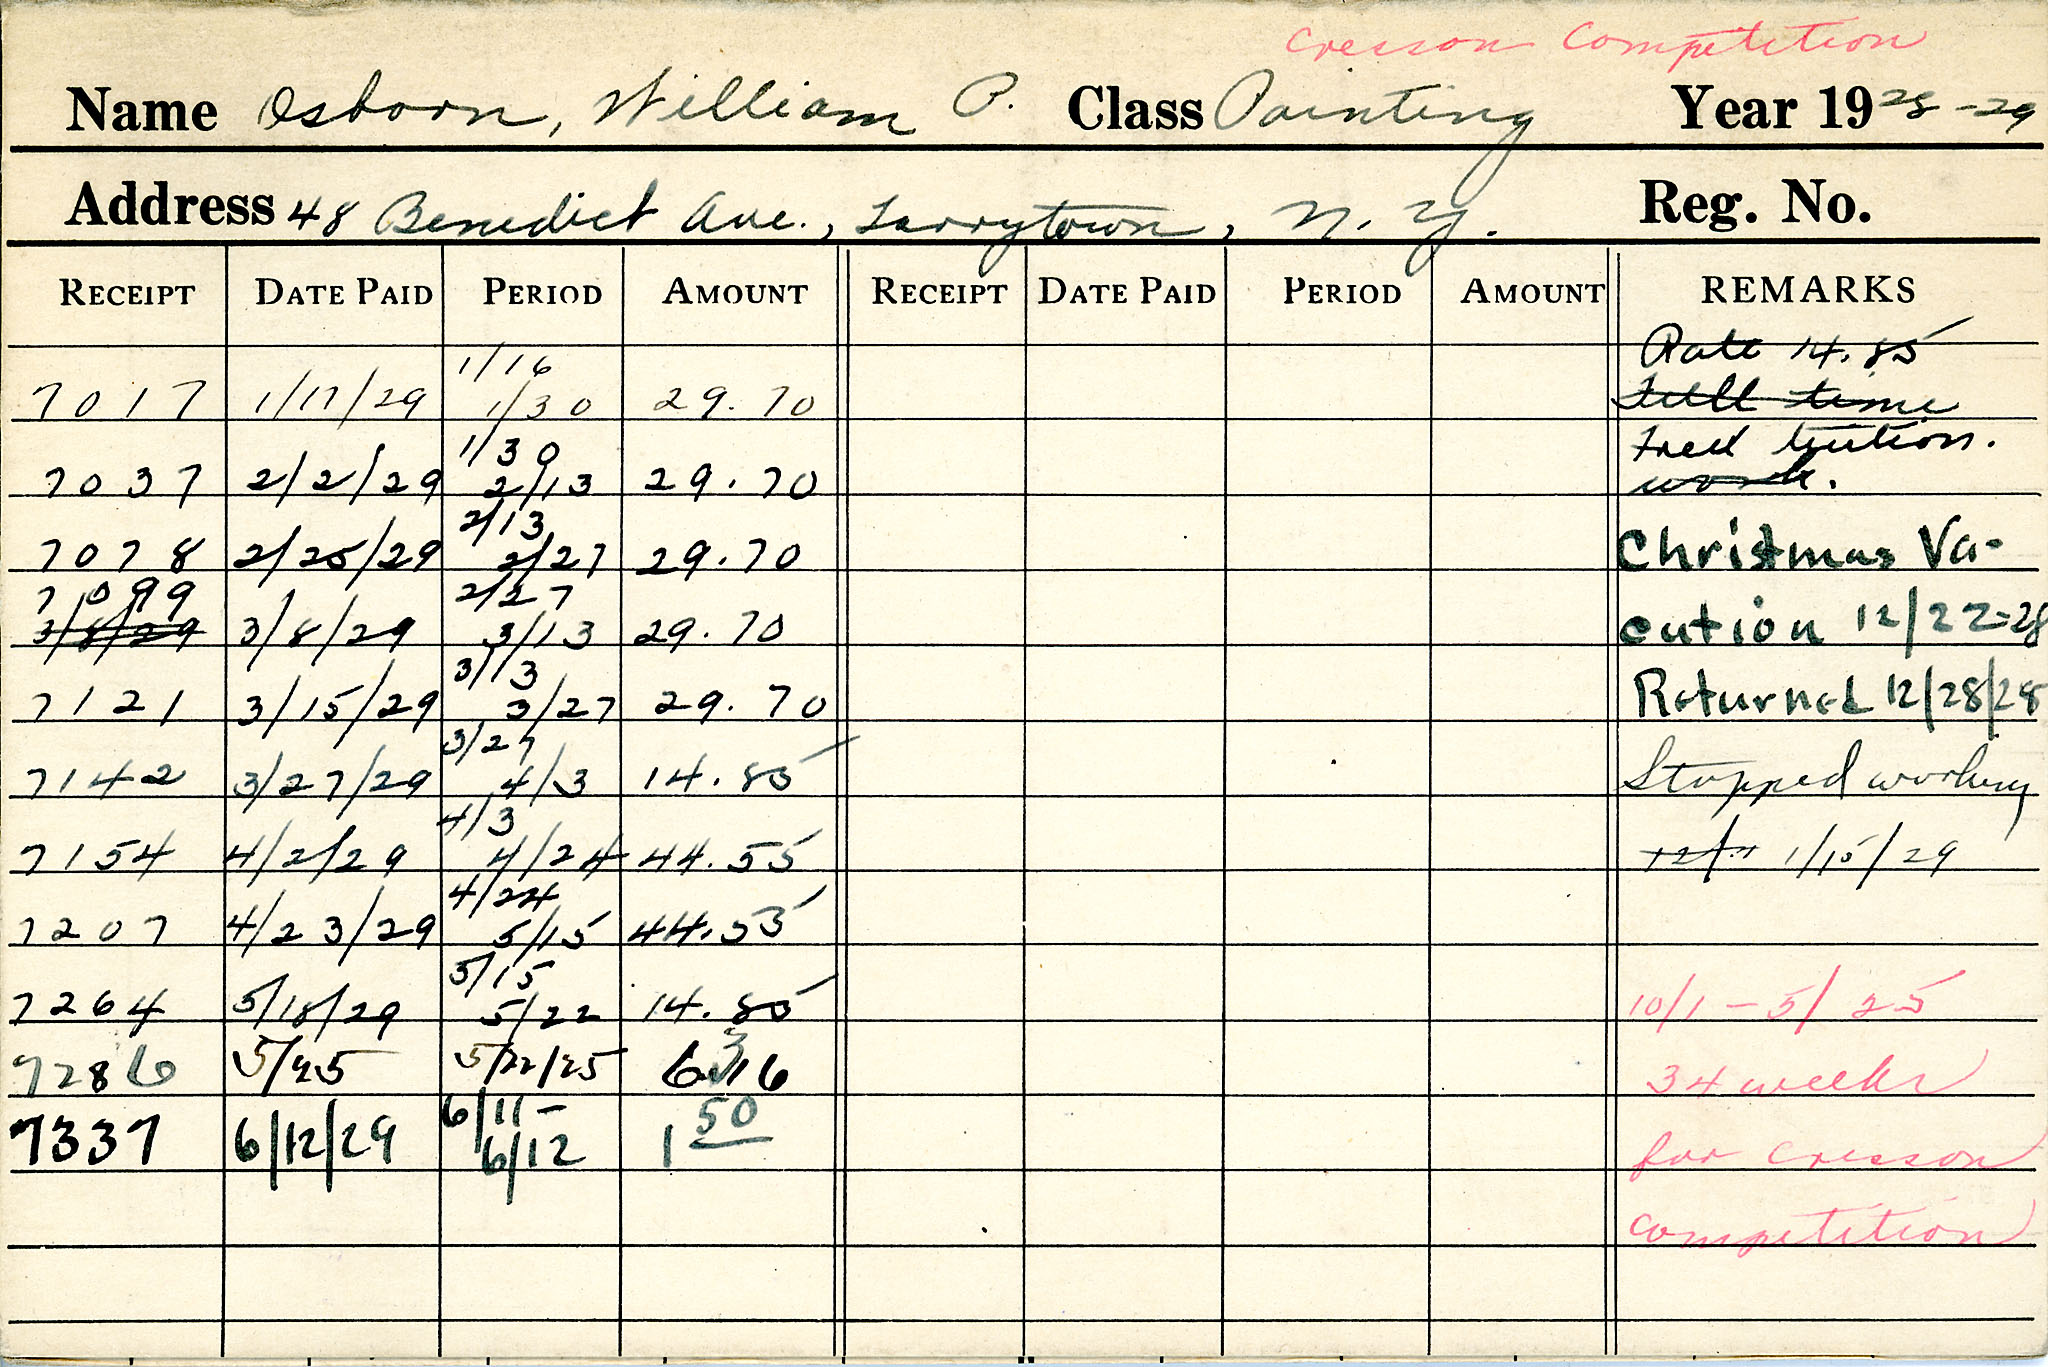 Cresson Competition
Name Osborn, William P. Class Painting Year 1928-29
Address 48 Benedict Ave., Tarrytown, N.Y. Reg. No.
RECEIPT DATE PAID PERIOD AMOUNT RECEIPT DATE PAID PERIOD AMOUNT REMARKS
Rate 14.85
1/16
7017 1/17/29 1/30 29.70 Full time
1/30 Free tuition.
7037 2/2/29 2/13 29.70 work.
2/13
7078 2/25/29 2/27 29.70 Christmas Va-
7099 2/27
3/8/29 3/8/29 3/13 29.70 cation 12/22-28
3/13
7121 3/15/29 3/27 29.70 Returned 12/28/28
3/27
7142 3/27/29 4/3 14.85 Stopped working
4/3
7154 4/2/29 4/24 44.55 1/15/29
4/24
7207 4/23/29 5/15 44.55
5/15
7264 5/18/29 5/22 14.85 10/1 - 5/25
7286 5/25 5/22/25 34 weeks
6/11- 50
7337 6/12/29 6/12 1 for Cresson
Competition